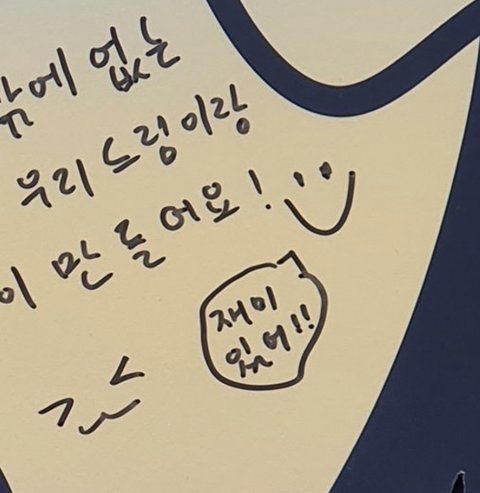 밖에 없는
우리 느링이랑
이 만들어요!
재미
있어!!